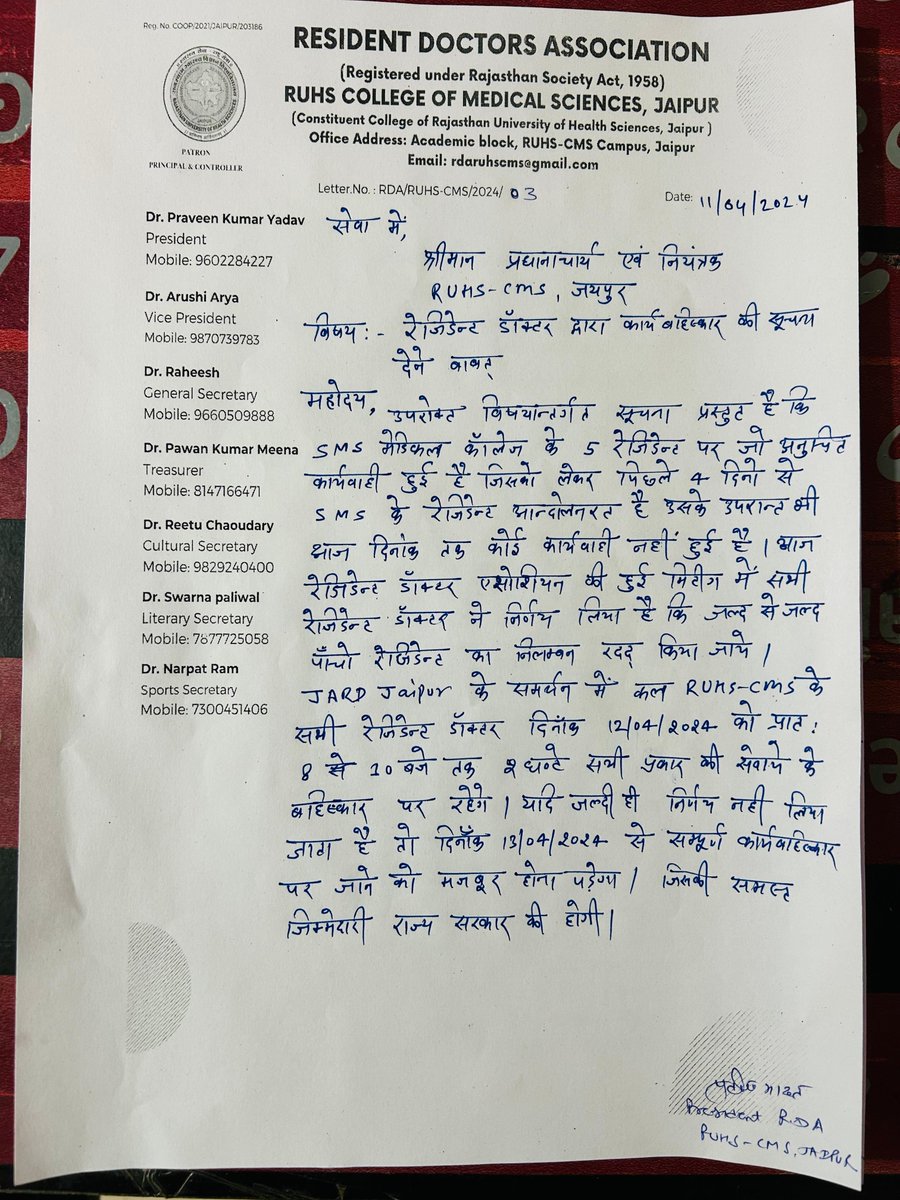 Reg. No. COOP/2021/JAIPUR/203186
RESIDENT DOCTORS ASSOCIATION
(Registered under Rajasthan Society Act, 1958)
RUHS COLLEGE OF MEDICAL SCIENCES, JAIPUR
(Constituent College of Rajasthan University of Health Sciences, Jaipur )
Office Address: Academic block, RUHS-CMS Campus, Jaipur
Email: rdaruhscms@gmail.com
PATRON
PRINCIPAL & CONTROLLER
Letter.No. : RDA/RUHS-CMS/2024/ 03
Date: 11/04/2024
Dr. Praveen Kumar Yadav
President
Mobile: 9602284227
Dr. Arushi Arya
Vice President
Mobile: 9870739783
Dr. Raheesh
General Secretary
Mobile: 9660509888
Dr. Pawan Kumar Meena
Treasurer
Mobile: 8147166471
Dr. Reetu Chaoudary
Cultural Secretary
Mobile: 9829240400
Dr. Swarna paliwal
Literary Secretary
Mobile: 7877725058
Dr. Narpat Ram
Sports Secretary
Mobile: 7300451406
सेवा में,
श्रीमान प्रधानाचार्य एवं नियंत्रक
RUHS-CMS, जयपुर
विषय:- रेजिडेन्ट डॉक्टर द्वारा कार्य बहिष्कार की सूचना
देने बाबत्
महोदय,
उपरोक्त विषयान्तर्गत सूचना प्रस्तुत है कि
SMS मेडिकल कॉलेज के 5 रेजिडेन्ट पर जो अनुचित
कार्यवाही हुई है जिसको लेकर पिछले 4 दिनो से
SMS के रेजिडेन्ट आन्दोलनरत है उसके उपरान्त भी
आज दिनांक तक कोई कार्यवाही नहीं हुई है। आज
रेजिडेन्ट डॉक्टर एसोशियन की हुई मिटींग में सभी
रेजिडेन्ट डॉक्टर ने निर्णय लिया है कि जल्द से जल्द
पाँचो रेजिडेन्ट का निलम्बन रदद् किया जाये।
JARD Jaipur के समर्थन में कल RUHS-CMS के
सभी रेजिडेन्ट डॉक्टर दिनाँक 12/04/2024 को प्रात:
8 से 10 बजे तक 2 घण्टे सभी प्रकार की सेवाये के
बहिष्कार पर रहेगे। यदि जल्दी ही निर्णय नही लिया
जाता है तो दिनाँक 13/04/2024 से सम्पूर्ण कार्यबहिष्कार
पर जाने को मजबूर होना पडेगा। जिसकी समस्त
जिम्मेदारी राज्य सरकार की होगी।
President RDA
RUHS-CMS, JAIPUR